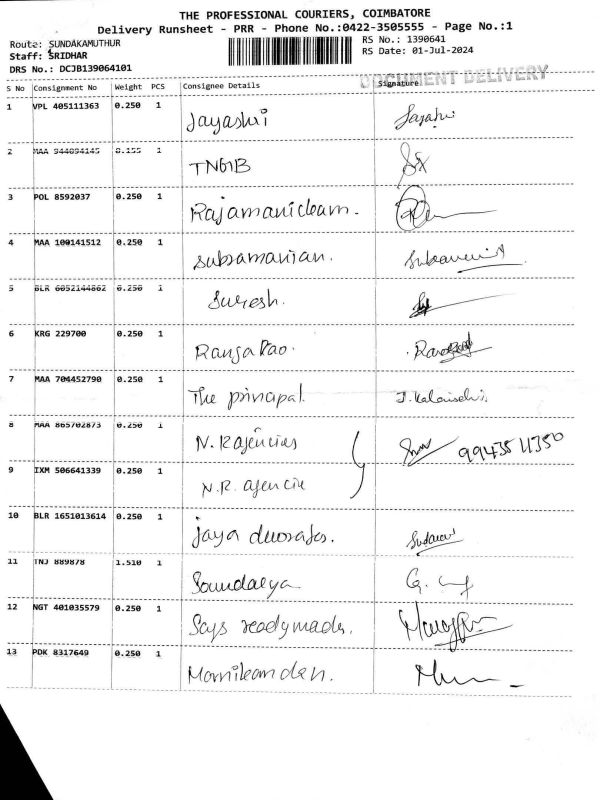 THE PROFESSIONAL COURIERS, COIMBATORE
Delivery Runsheet - PRR - Phone No.:0422-3505555 - Page No.:1
Route: SUNDAKAMUTHUR
RS No.: 1390641
Staff: SRIDHAR
RS Date: 01-Jul-2024
DRS No.: DCJB139064101
DOCUMENT DELIVERY
S No Consignment No Weight PCS Consignee Details Signature
1 VPL 405111363 0.250 1 Jayashri
2 MAA 944894145 0.155 1 TN61B
3 POL 8592037 0.250 1 Rajamanickam.
4 MAA 100141512 0.250 1 subramanian.
5 BLR 6052144862 0.250 1 Suresh.
6 KRG 229700 0.250 1 Ranga Rao.
7 MAA 704452790 0.250 1 The principal.
8 MAA 865702873 0.250 1 N.R agencies 9943511350
9 IXM 506641339 0.250 1 N.R. agencie
10 BLR 1651013614 0.250 1 Jaya
11 TNJ 889878 1.510 1 Soundarya
12 NGT 401035579 0.250 1 Says readymades.
13 PDK 8317649 0.250 1 Manikandan.